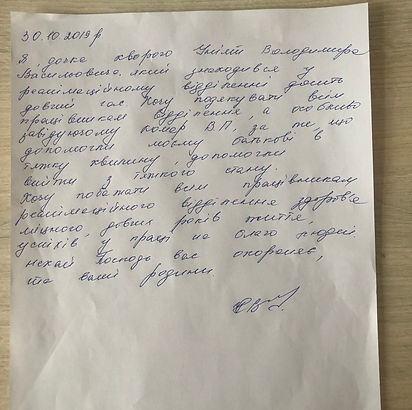 30.10.2019 р
Я, дочка хворого Володимира
Васильовича, який знаходився у
реанімаційному відділенні досить
довгий час. Хочу подякувати всім
працівникам відділення, а особливо
завідуючому Комар В.П. за те, що
допомогли моєму батькові в
тяжку хвилину, допомогли
вийти з тяжкого стану.
Хочу побажати всім працівникам
реанімаційного відділення здоровя
міцного, довгих років життя,
успіхів у праці на благо людей.
нехай Господь вас охороняє,
та ваші родини.